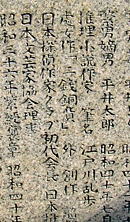 嫡男 平井太郎 昭和四十
推理小説作家 筆名 江戸川乱歩
処女作「二銭銅貨」外 創作
日本探偵作家クラブ初代会長 日本推
日本文芸家協会理事
昭和三十六年紫綬褒章 昭和四十年